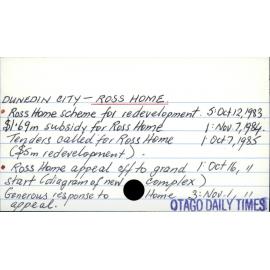 DUNEDIN CITY — ROSS HOME.
• Ross Home scheme for redevelopment. 5: Oct 12, 1983
$1.69m subsidy for Ross Home 1: Nov 7, 1984.
Tenders called for Ross Home 1 Oct 7, 1985
($5m redevelopment).
• Ross Home appeal off to grand 1: Oct 16, "
start (diagram of new complex)
Generous response to Home 3: Nov 1, "
appeal.
OTAGO DAILY TIMES